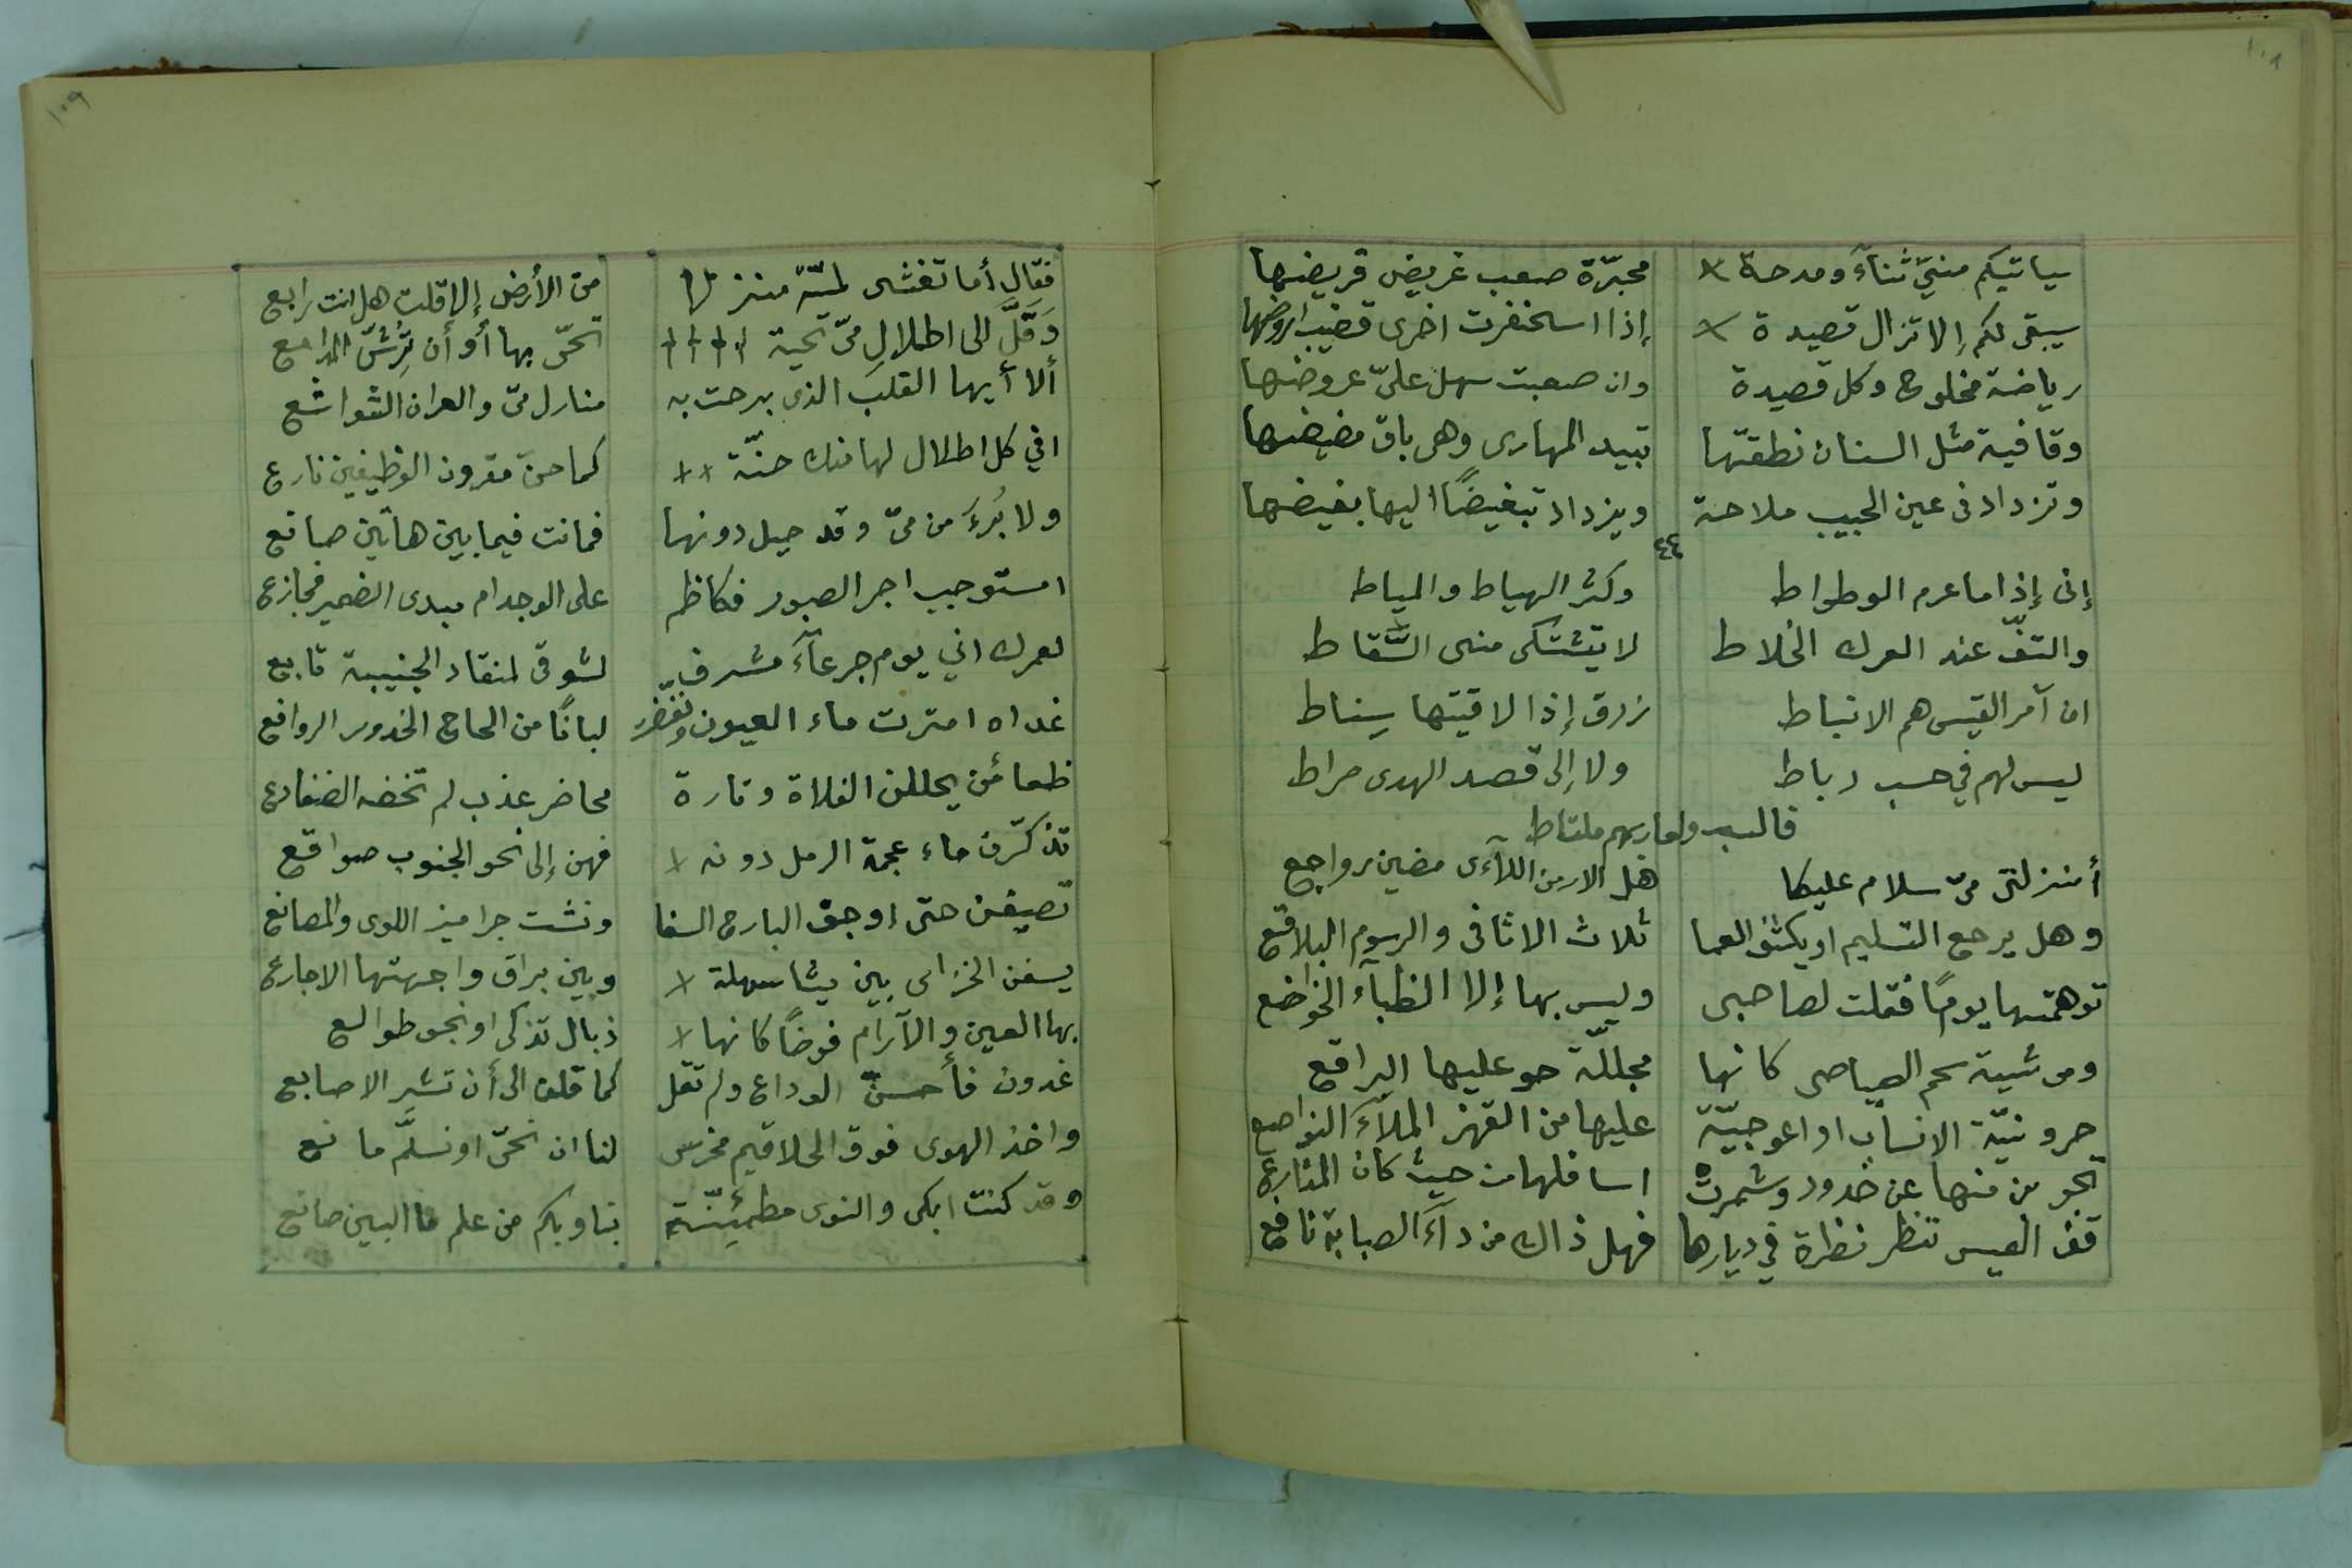 ١٠٨
سياتيكم منيّ ثناءً ومدحة محبرّة صعب غريض قريضها
سيبقى لكم إلا تزال قصيدة إذا اسحنفرت اخرى قضيب اروضها
رياضة مخلوج وكل قصيدة وان صعبت سهل علىّ عروضها
وقافية مثل السنان نطقتها تبيد المهارى وهى باق مضيضها
وتزداد فى عين الحبيب ملاحة ويزداد تبغيضًا اليها بغيضها
٤٤
إنى إذا ما عرم الوطواط وكثر الهياط والمياط
والتفّ عند العرك الخلاط لا يتشكى منى السّقاط
ان آمر القيس هم الانباط زرق إذا لاقيتها سِناط
ليس لهم في حسب رباط ولا إلى قصد الهدى صراط
فالسب والعار بهم ملتاط
أمنزلتى مىّ سلام عليكما هل الازمن اللآءى مضين رواجع
وهل يرجع التسليم او يكشف العما ثلاث الاثافى والرسوم البلاقع
توهمتها يومًا فقلت لصاحبى وليس بها إلا الظبآء الخواضع
وموشية سحم الصياصى كانها مجللّة حو عليها البراقع
حرونيّة الانساب او اعوجيّة عليها من القهز الملآء النواصع
تجوبن منها عن خدود وشمرت اسافلها من حيث كان المذارع
قف العيس تنظر نظرة في ديارها فهل ذاك من دآء الصبابة نافع
١٠٩
فقال أما تغشى لميّة منزلا من الأرض إلا قلت هل انت رابع
وَقَلَّ الى اطلالِ مىّ تحية تحىّ بها أو أن تُرِشّ المدامع
ألا أيها القلب الذى برحت به منازل مىّ والعران الشواشع
افي كل اطلال لها منك حنّة كما حنّ مقرون الوظيفين نازع
ولا بُرءَ من مىّ وقد حيل دونها فما انت فيما بين هاتين صانع
امستوجب اجر الصبور فكاظم على الوجد ام مبدى الضمير فجازع
لعمرك اني يوم جرعآء مشرف لشوقى لمنقاد الجنيبة تابع
غداه امترت ماء العيون ونغّضر لبانًا من الحاج الخدور الروافع
ظعائن يحللن الفلاة وتارة محاضر عذب لم تخضه الضفادع
تذكرّن ماء عجمة الرمل دونه فهن إلى نحو الجنوب صواقع
تصيفن حتى اوجف البارح السفا ونشت جراميز اللوى والمصانع
يسفن الخزامى بين ميثا سهلة وبين براق واجهتها الاجارع
بها العين والآرام فوضًا كانها ذبال تذكى او نجوم طوالع
غدون فأحسنّ الوداع ولم تقل كما قلن الى أن تشير الاصابع
واخذ الهوى فوق الحلاقيم مخرس لنا ان نحىّ او نسلّم مانع
وقد كنت ابكى والنوى مطمئِنّة بنا وبكم من علم ما البين صانع